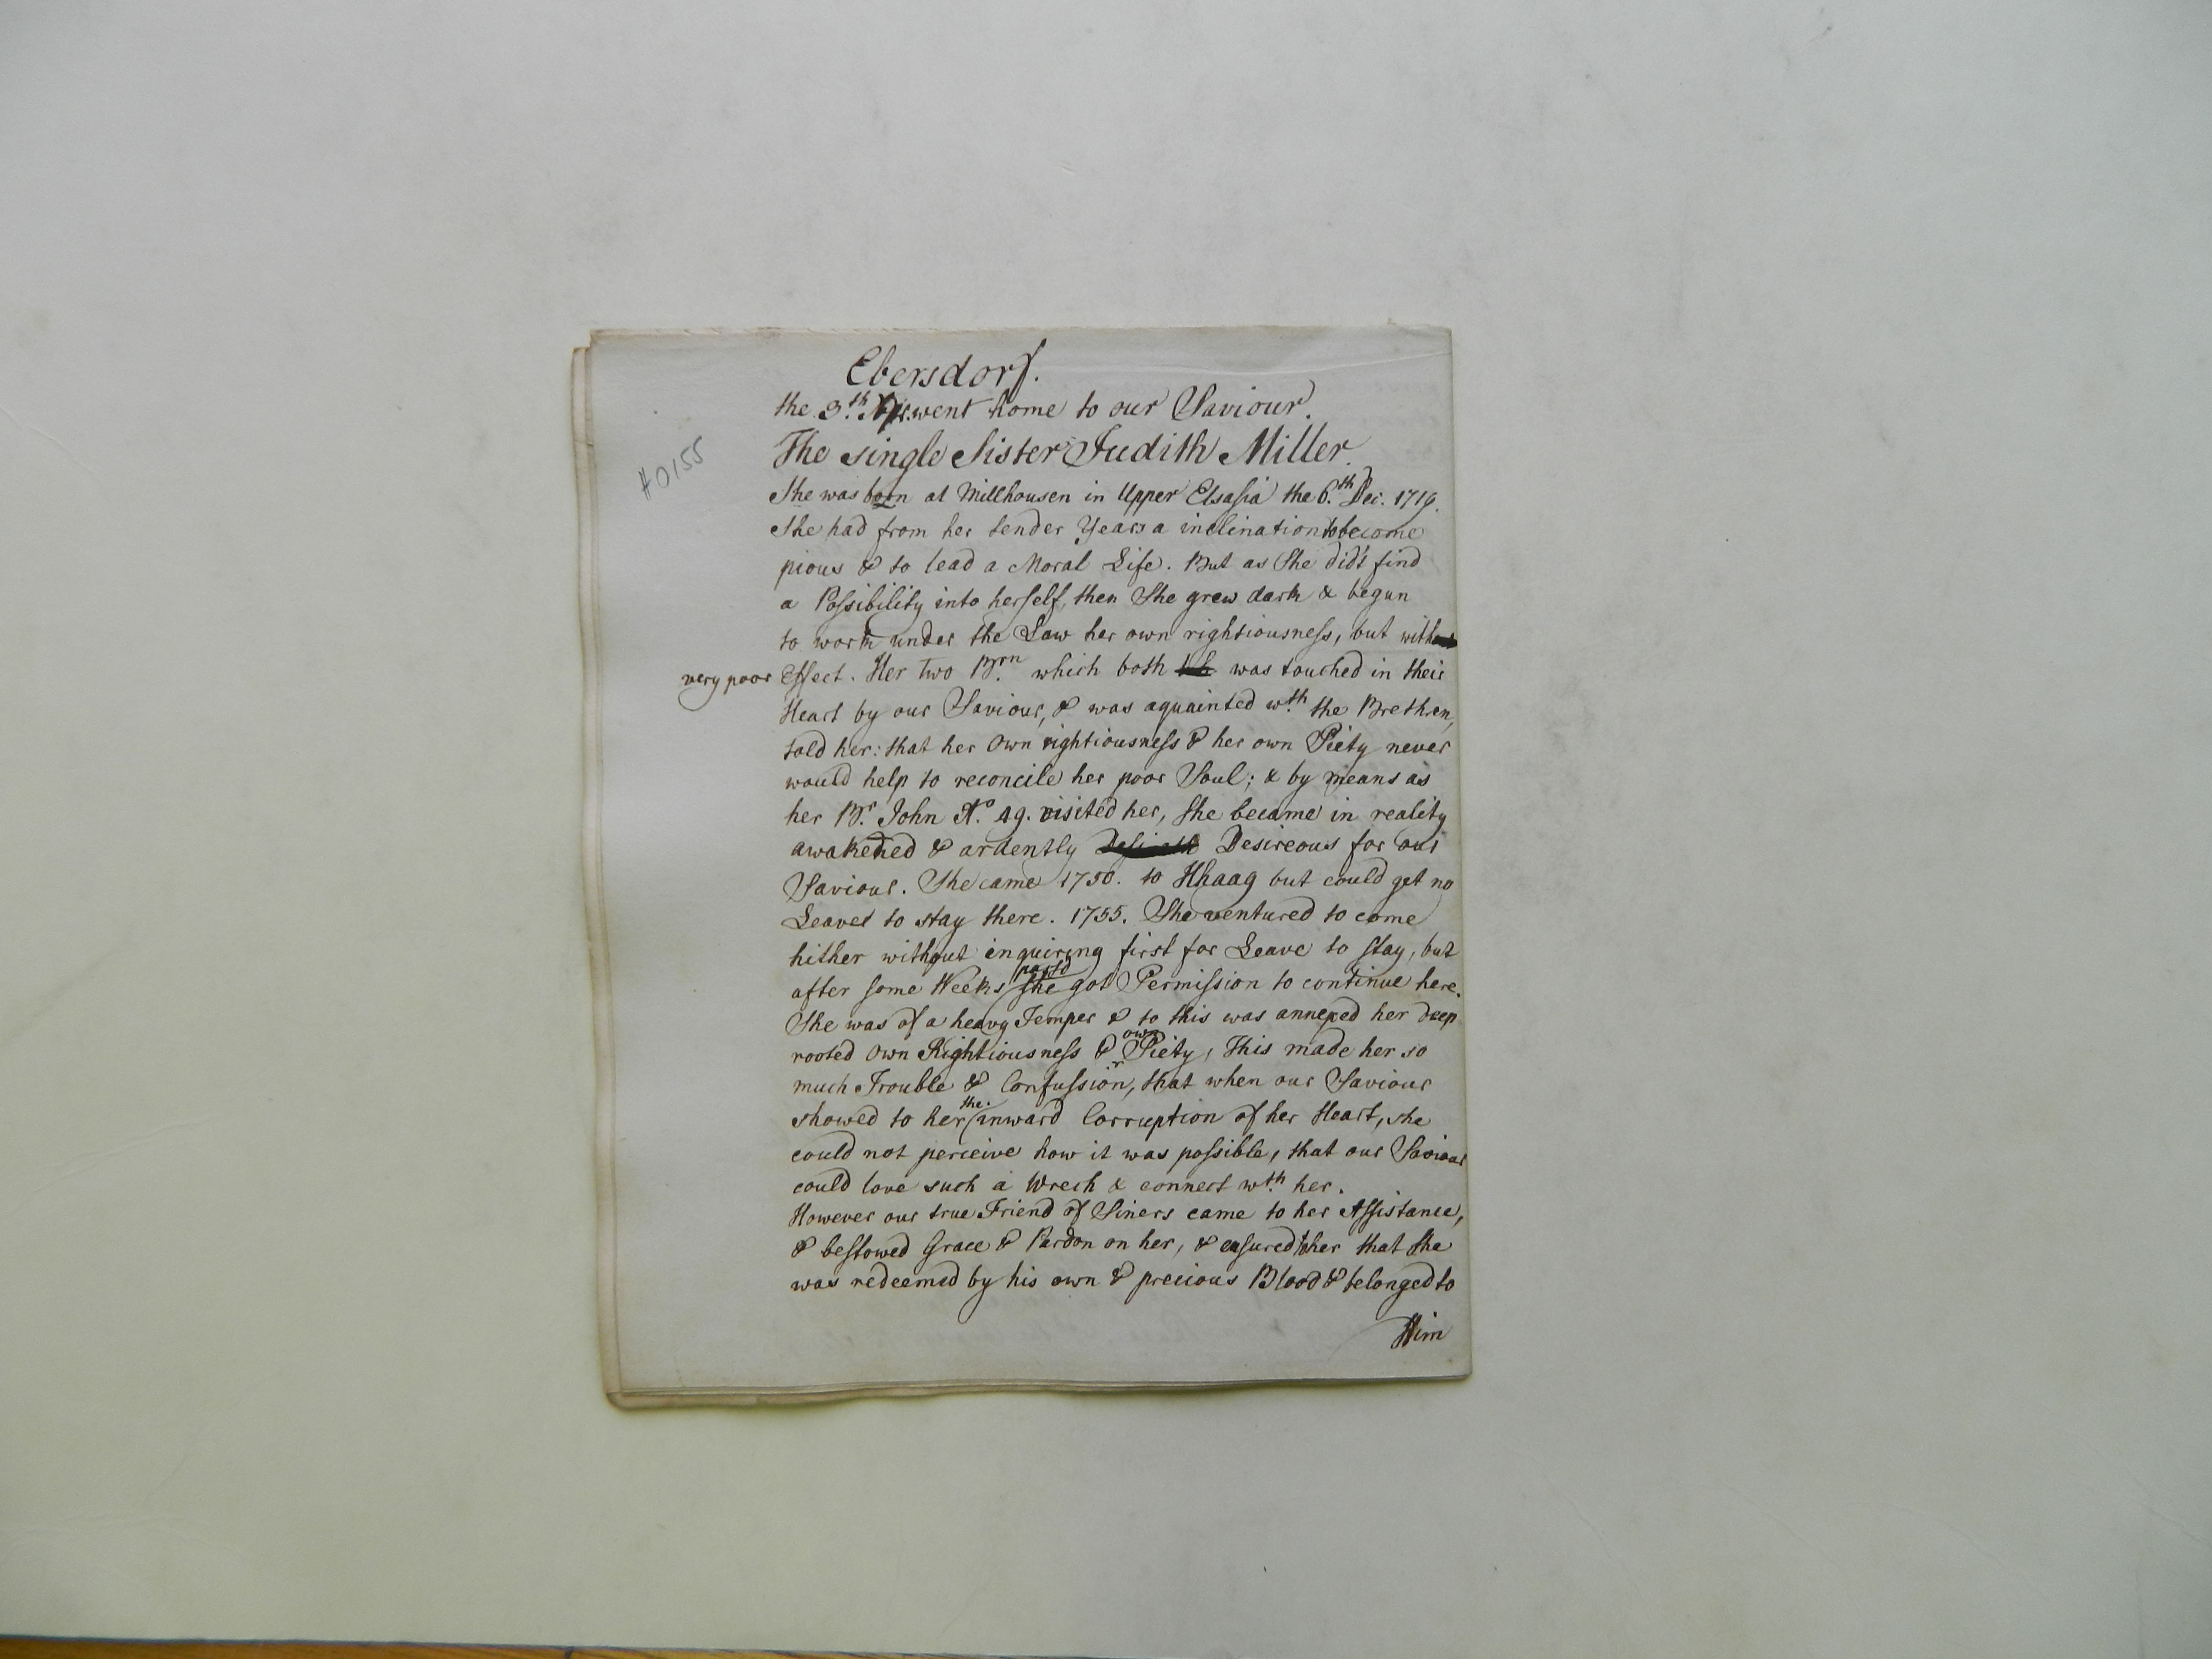 Ebersdorf.
the 3.th went home to our Saviour.
The single Sister Judith Miller.
#0155
She was born at Millhousen in Upper Elsasia the 6.th Dec. 1719.
She had from her tender Years a inclination to become
pious & to lead a Moral Life. But as She did't find
a Possibility into herself, then She grew dark & begun
to work under the Law her own rightiousness, but with
very poor Effect. Her two Brn. which both was touched in their
Heart by our Saviour, & was aquainted wth. the Brethren,
told her: that her Own rightiousness & her own Piety never
would help to reconcile her poor Soul; & by means as
her Br. John No. 49. visited her, She became in reality
awakened & ardently Desireous for our
Saviour. She came 1750. to Hhaag but could get no
Leaves to stay there. 1755. She ventured to come
hither without enquiring first for Leave to stay, but
after some Weeks past'd she got Permission to continue here.
She was of a heavy Temper & to this was annexed her deep
rooted Own Rightiousness & own Piety, This made her so
much Trouble & Confussion, that when our Saviour
showed to her the inward Corruption of her Heart, she
could not perceive how it was possible, that our Saviour
could love such a Wrech & connect wth. her.
However our true Friend of Siners came to her Assistance,
& bestowed Grace & Pardon on her, & ensured to her that She
was redeemed by his own & precious Blood & belonged to
Him